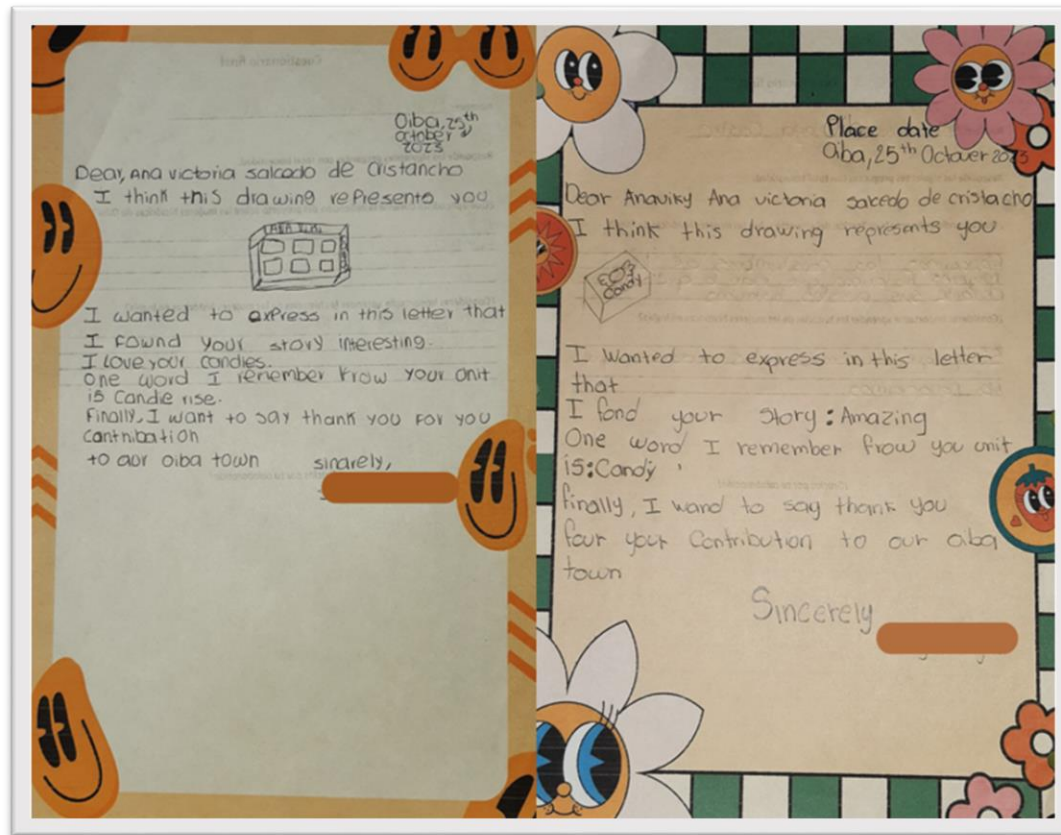 Oiba, 25th
october
2023
Dear, Ana victoria salcedo de Cristancho
I think this drawing represento you
I wanted to express in this letter that
I fownd your story interesting.
I love your candies.
One word I remember frow your onit
is Candie rise.
Finally, I want to say thank you for you
Contribation
to aor oiba town
sinarely,
Place date
Oiba, 25th Octouer 2023
Dear Anaviky Ana victoria salcedo de cristacho
I think this drawing represents you
Candy
I wanted to express in this letter
that
I fond your Story: Amazing
One word I remember frow you unit
is: Candy
finally, I wand to say thank you
four your Contribution to our oiba
town
Sincerely